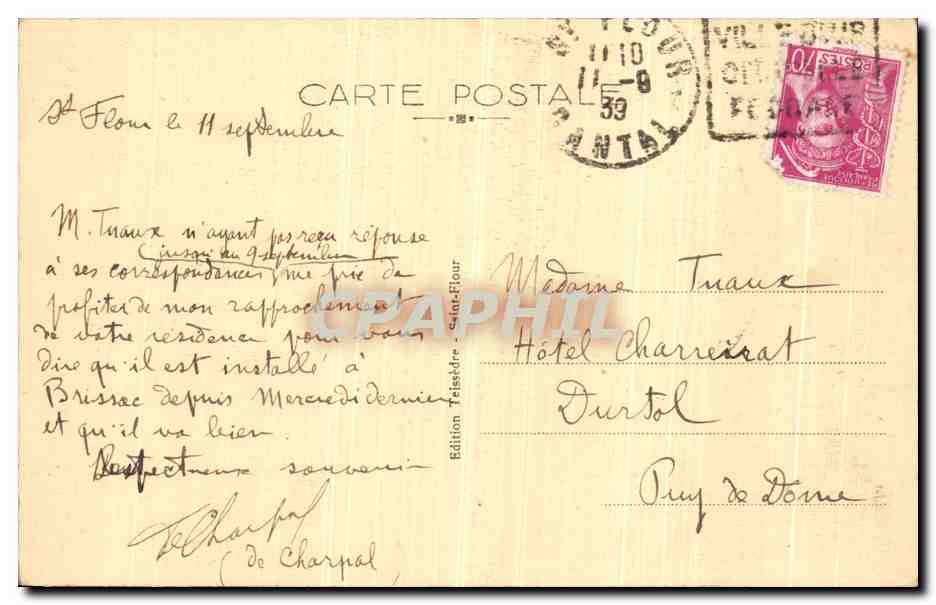 CARTE POSTALE
St Flour le 11 septembre
M. Tuaux n'ayant pas reçu réponse
jusqu'au 9 septembre
à ses correspondances me prie de
profiter de mon rapprochement
de votre résidence pour vous
dire qu'il est installé à
Brissac depuis Mercredi dernier
et qu'il va bien.
Respectueux souvenir
de Charpal
(de Charpal)
Edition Teissèdre - Saint-Flour
CPAPHIL
FLOUR
11 10
11 -9
39
CANTAL
VILLE
FEODALE
70
POSTES
REPUBLIQUE
FRANÇAISE
Madame Tuaux
Hôtel Charreirat
Durtol
Puy de Dome